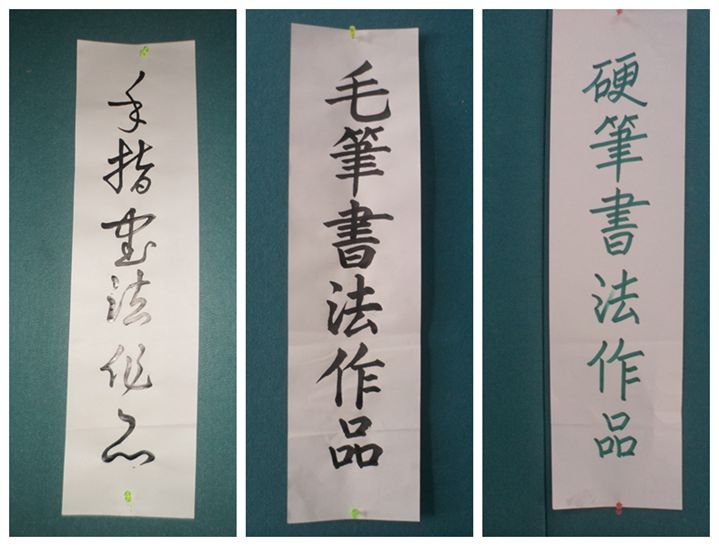 手指書法作品
毛筆書法作品
硬筆書法作品